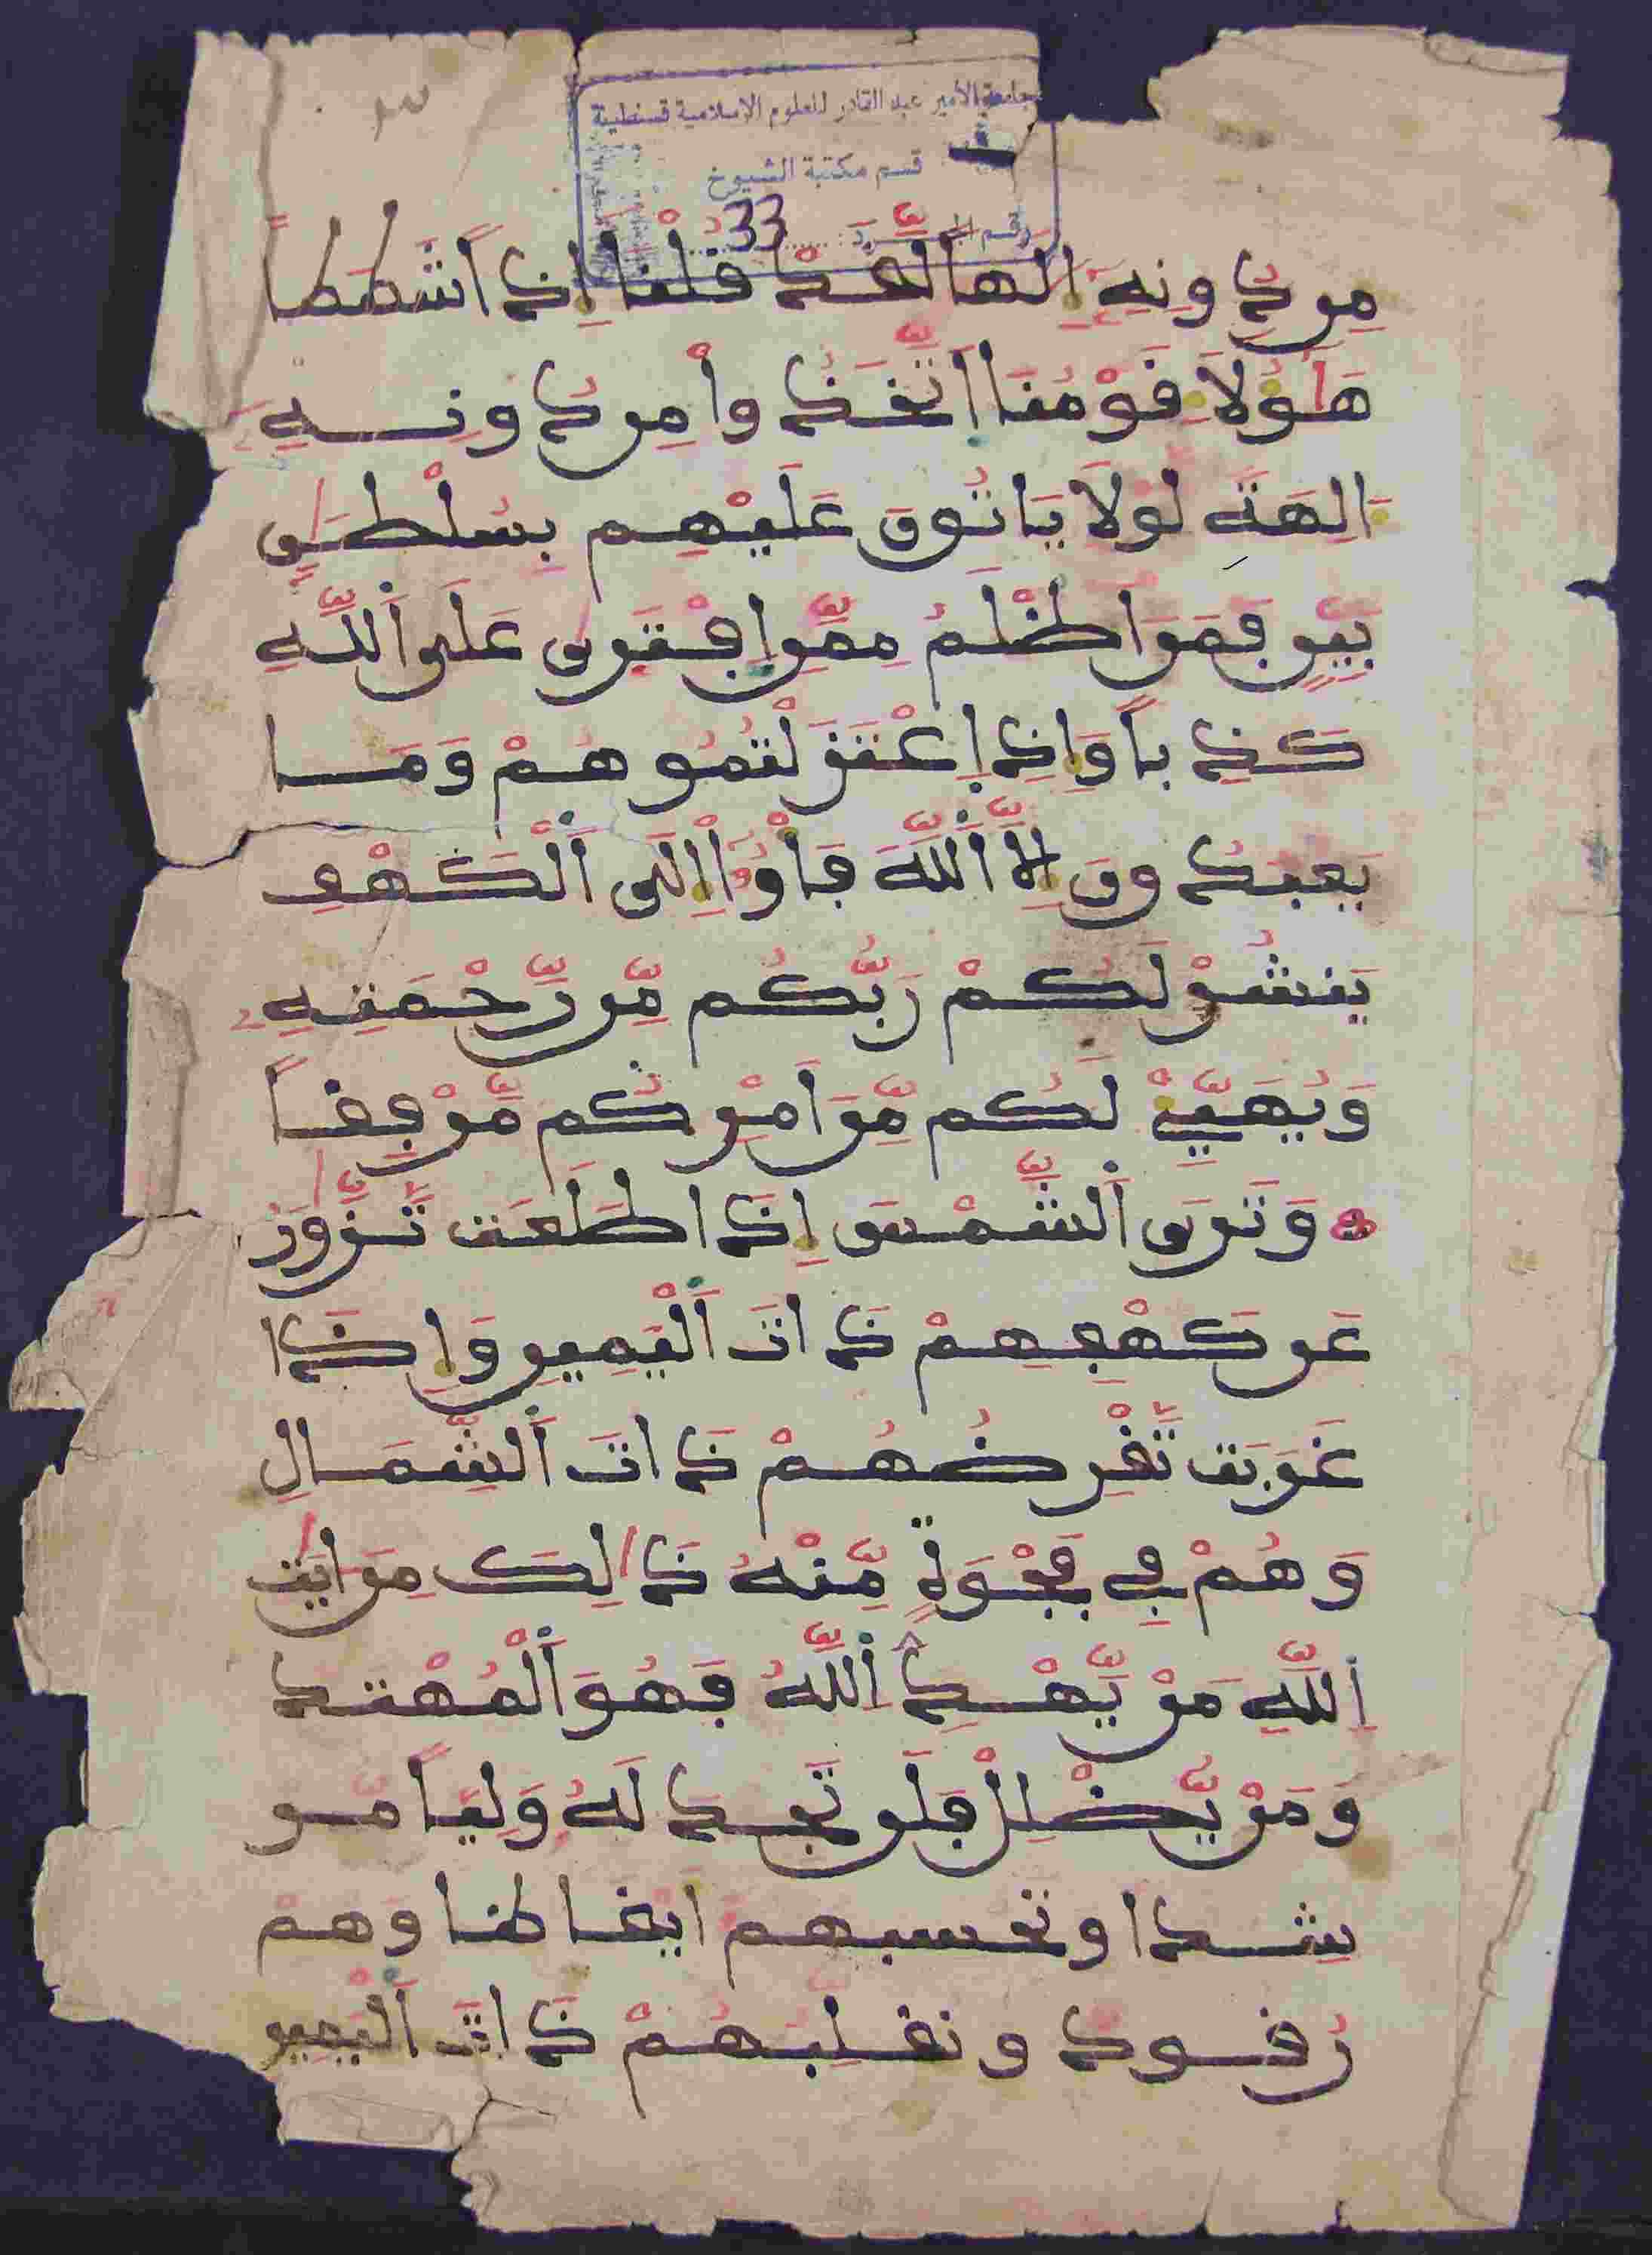 جامعة الأمير عبد القادر للعلوم الإسلامية قسنطينة
قسم مكتبة الشيوخ
رقم الجـــرد: ....33....
مِن دُونِهِ إِلَٰهاً لَّقَدْ قُلْنَا إِذاً شَطَطاً
هَٰؤُلَاءِ قَوْمُنَا اَتَّخَذُواْ مِن دُونِهِ
ءَالِهَةً لَوْلَا يَاتُونَ عَلَيْهِم بِسُلْطَٰنٍ
بَيِّنٍ فَمَنَ اَظْلَمُ مِمَّنِ اِفْتَرَىٰ عَلَى اَللَّهِ
كَذِباً وَإِذِ اِعْتَزَلْتُمُوهُمْ وَمَا
يَعْبُدُونَ إِلَّا اَللَّهَ فَأْوُواْ إِلَى اَلْكَهْفِ
يَنشُرْ لَكُمْ رَبُّكُم مِّن رَّحْمَتِهِ
وَيُهَيِّئْ لَكُم مِّنَ اَمْرِكُم مَّرْفِقاً
وَتَرَى اَلشَّمْسَ إِذَا طَلَعَت تَّزَّٰوَرُ
عَن كَهْفِهِمْ ذَاتَ اَلْيَمِينِ وَإِذَا
غَرَبَت تَّقْرِضُهُمْ ذَاتَ اَلشِّمَالِ
وَهُمْ فِي فَجْوَةٍ مِّنْهُ ذَٰلِكَ مِنَ اٰيَٰتِ
اِللَّهِ مَنْ يَّهْدِ اِللَّهُ فَهُوَ اَلْمُهْتَدِ
وَمَنْ يُّضْلِلْ فَلَن تَجِدَ لَهُ وَلِيّاً مر
شدا وتحسبهم أيقاظا وهم
رُقود ونقلبُهُمْ ذَاتَ اَلْيَمِينِ